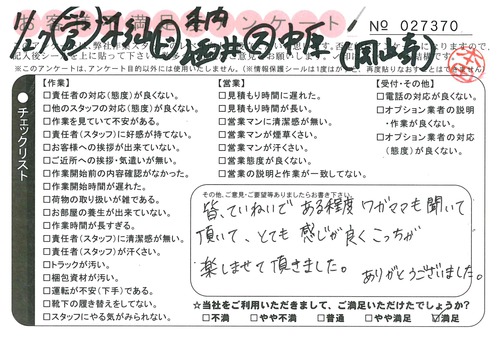 お客様満足度アンケート
No 027370
【作業】
□責任者の対応(態度)が良くない。
□他のスタッフの対応(態度)が良くない。
□作業を見ていて不安がある。
□責任者(スタッフ)に好感が持てない。
□お客様への挨拶が出来ていない。
□ご近所への挨拶・気遣いが無い。
□作業開始前の内容確認がなかった。
□作業開始時間が遅れた。
□荷物の取り扱いが雑である。
□お部屋の養生が出来ていない。
□作業時間が長すぎる。
□責任者(スタッフ)に清潔感が無い。
□責任者(スタッフ)が汗くさい。
□トラックが汚い。
□梱包資材が汚い。
□運転が不安(下手)である。
□靴下の履き替えをしてない。
□スタッフにやる気がみられない。
【営業】
□見積もり時間に遅れた。
□見積もり時間が長い。
□営業マンに清潔感が無い。
□営業マンが煙草くさい。
□営業マンが汗くさい。
□営業態度が良くない。
□営業の説明と作業が一致してない。
【受付・その他】
□電話の対応が良くない。
□オプション業者の説明
・作業が良くない。
□オプション業者の対応
(態度)が良くない。
チェックリスト
その他、ご意見・ご要望等ありましたらお書き下さい。
皆、ていねいで ある程度 ワガママも聞いて
頂いて、とても 感じが良く こっちが
楽しませて頂きました。 ありがとうございました。
☆当社をご利用いただきまして、ご満足いただけたでしょうか?
□不満 □やや不満 □普通 □やや満足 ☑満足